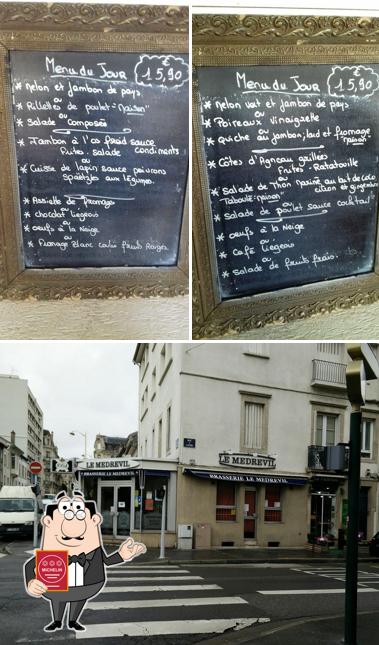 Menu du Jour
15,90
* Melon et jambon de pays
ou
* Rillettes de poulet "maison"
ou
* Salade composée
* Jambon à l'os froid sauce
Frites. salade condiments
ou
* Cuisse de lapin sauce poivrons
Spätzles aux légumes.
* Assiette de fromage
ou
* chocolat liégeois
ou
* oeufs à la Neige
ou
* fromage Blanc coulis fruits Rouges
Menu du Jour
15,90
* Melon vert et jambon de pays
ou
* Poireaux Vinaigrette
ou
* quiche au jambon, lard et fromage
maison
* Côtes d'Agneau grillées
frites - Ratatouille
ou
* Salade de Thon mariné au lait de coco
citron et gingembre
Taboulé "maison"
ou
* Salade de poulet sauce cocktail
* oeufs à la Neige
ou
* Café liégeois
ou
* Salade de fruits frais.
LE MEDREVIL
BRASSERIE LE MEDREVIL
LE MEDREVIL
BRASSERIE LE MEDREVIL
MICHELIN